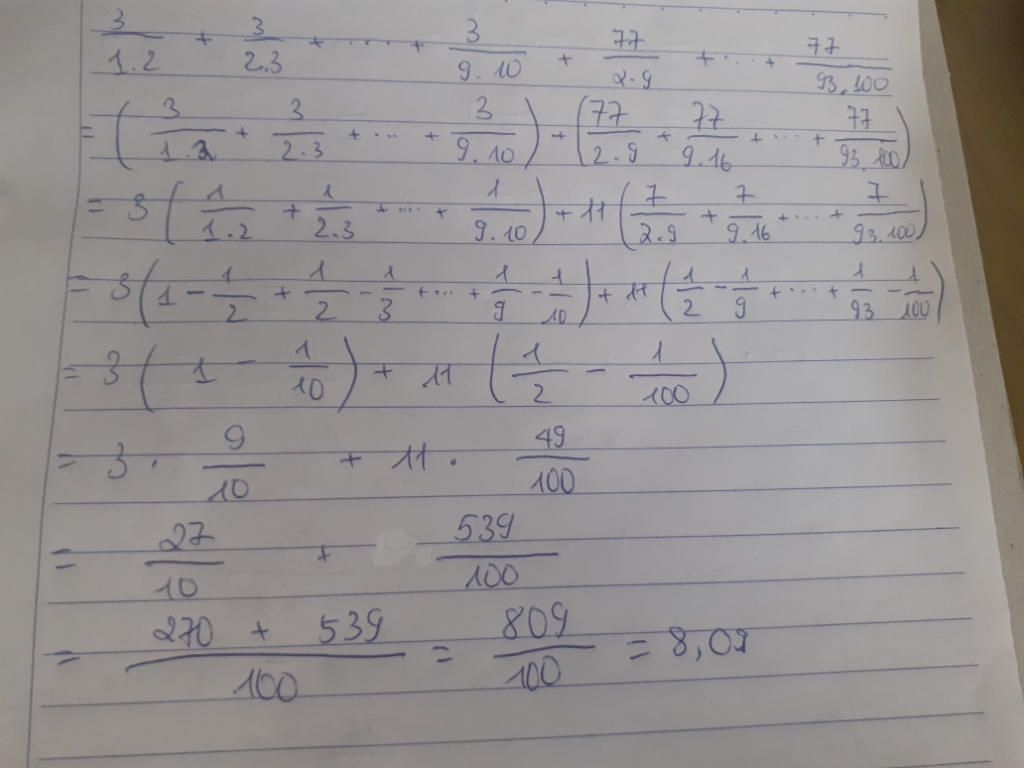 3/1.2 + 3/2.3 + .... + 3/9.10 + 77/2.9 + ... + 77/93.100
= (3/1.2 + 3/2.3 + ... + 3/9.10) + (77/2.9 + 77/9.16 + ... + 77/93.100)
= 3(1/1.2 + 1/2.3 + .... + 1/9.10) + 11(7/2.9 + 7/9.16 + ... + 7/93.100)
= 3(1 - 1/2 + 1/2 - 1/3 + ... + 1/9 - 1/10) + 11(1/2 - 1/9 + ... + 1/93 - 1/100)
= 3(1 - 1/10) + 11(1/2 - 1/100)
= 3 . 9/10 + 11 . 49/100
= 27/10 + 539/100
= 270 + 539/100 = 809/100 = 8,09